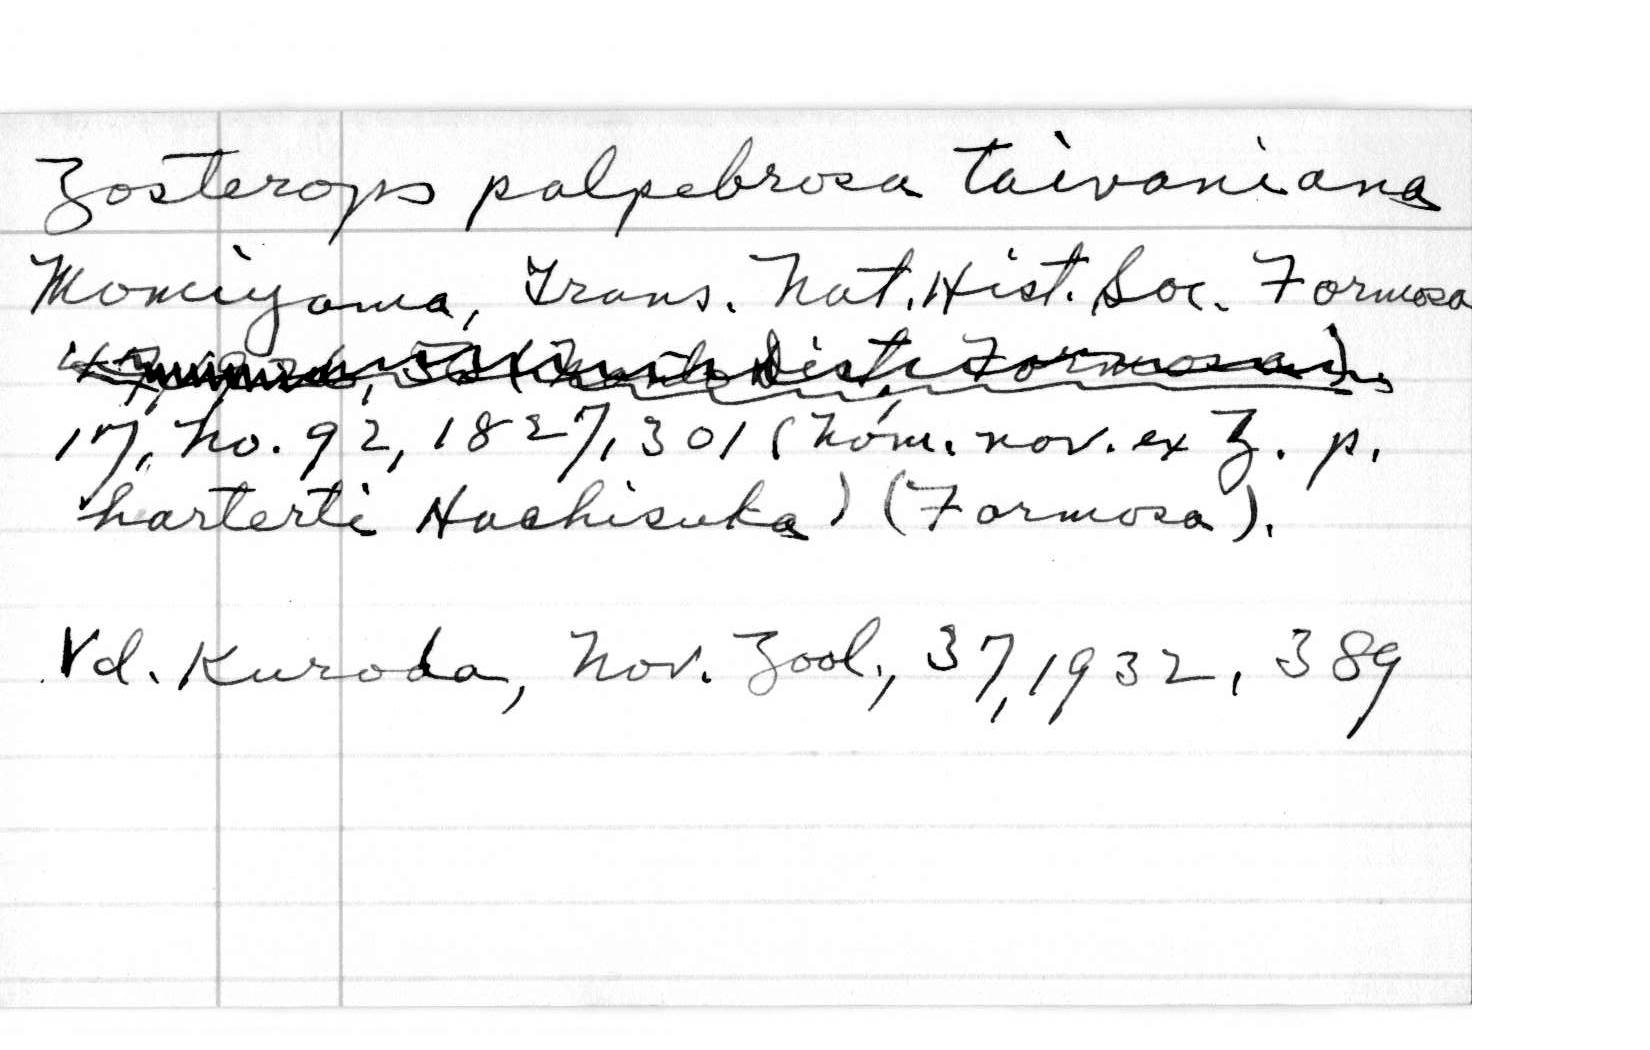 Zosterops palpebrosa taivaniana
Momiyama, Trans. Nat. Hist. Soc. Formosa
Dist. Formosa).
17, no. 92, 1827, 301 (nom. nov. ex Z. p.
harterti Hachisuka) (Formosa).
Vd. Kuroda, Nov. Zool., 37, 1932, 389